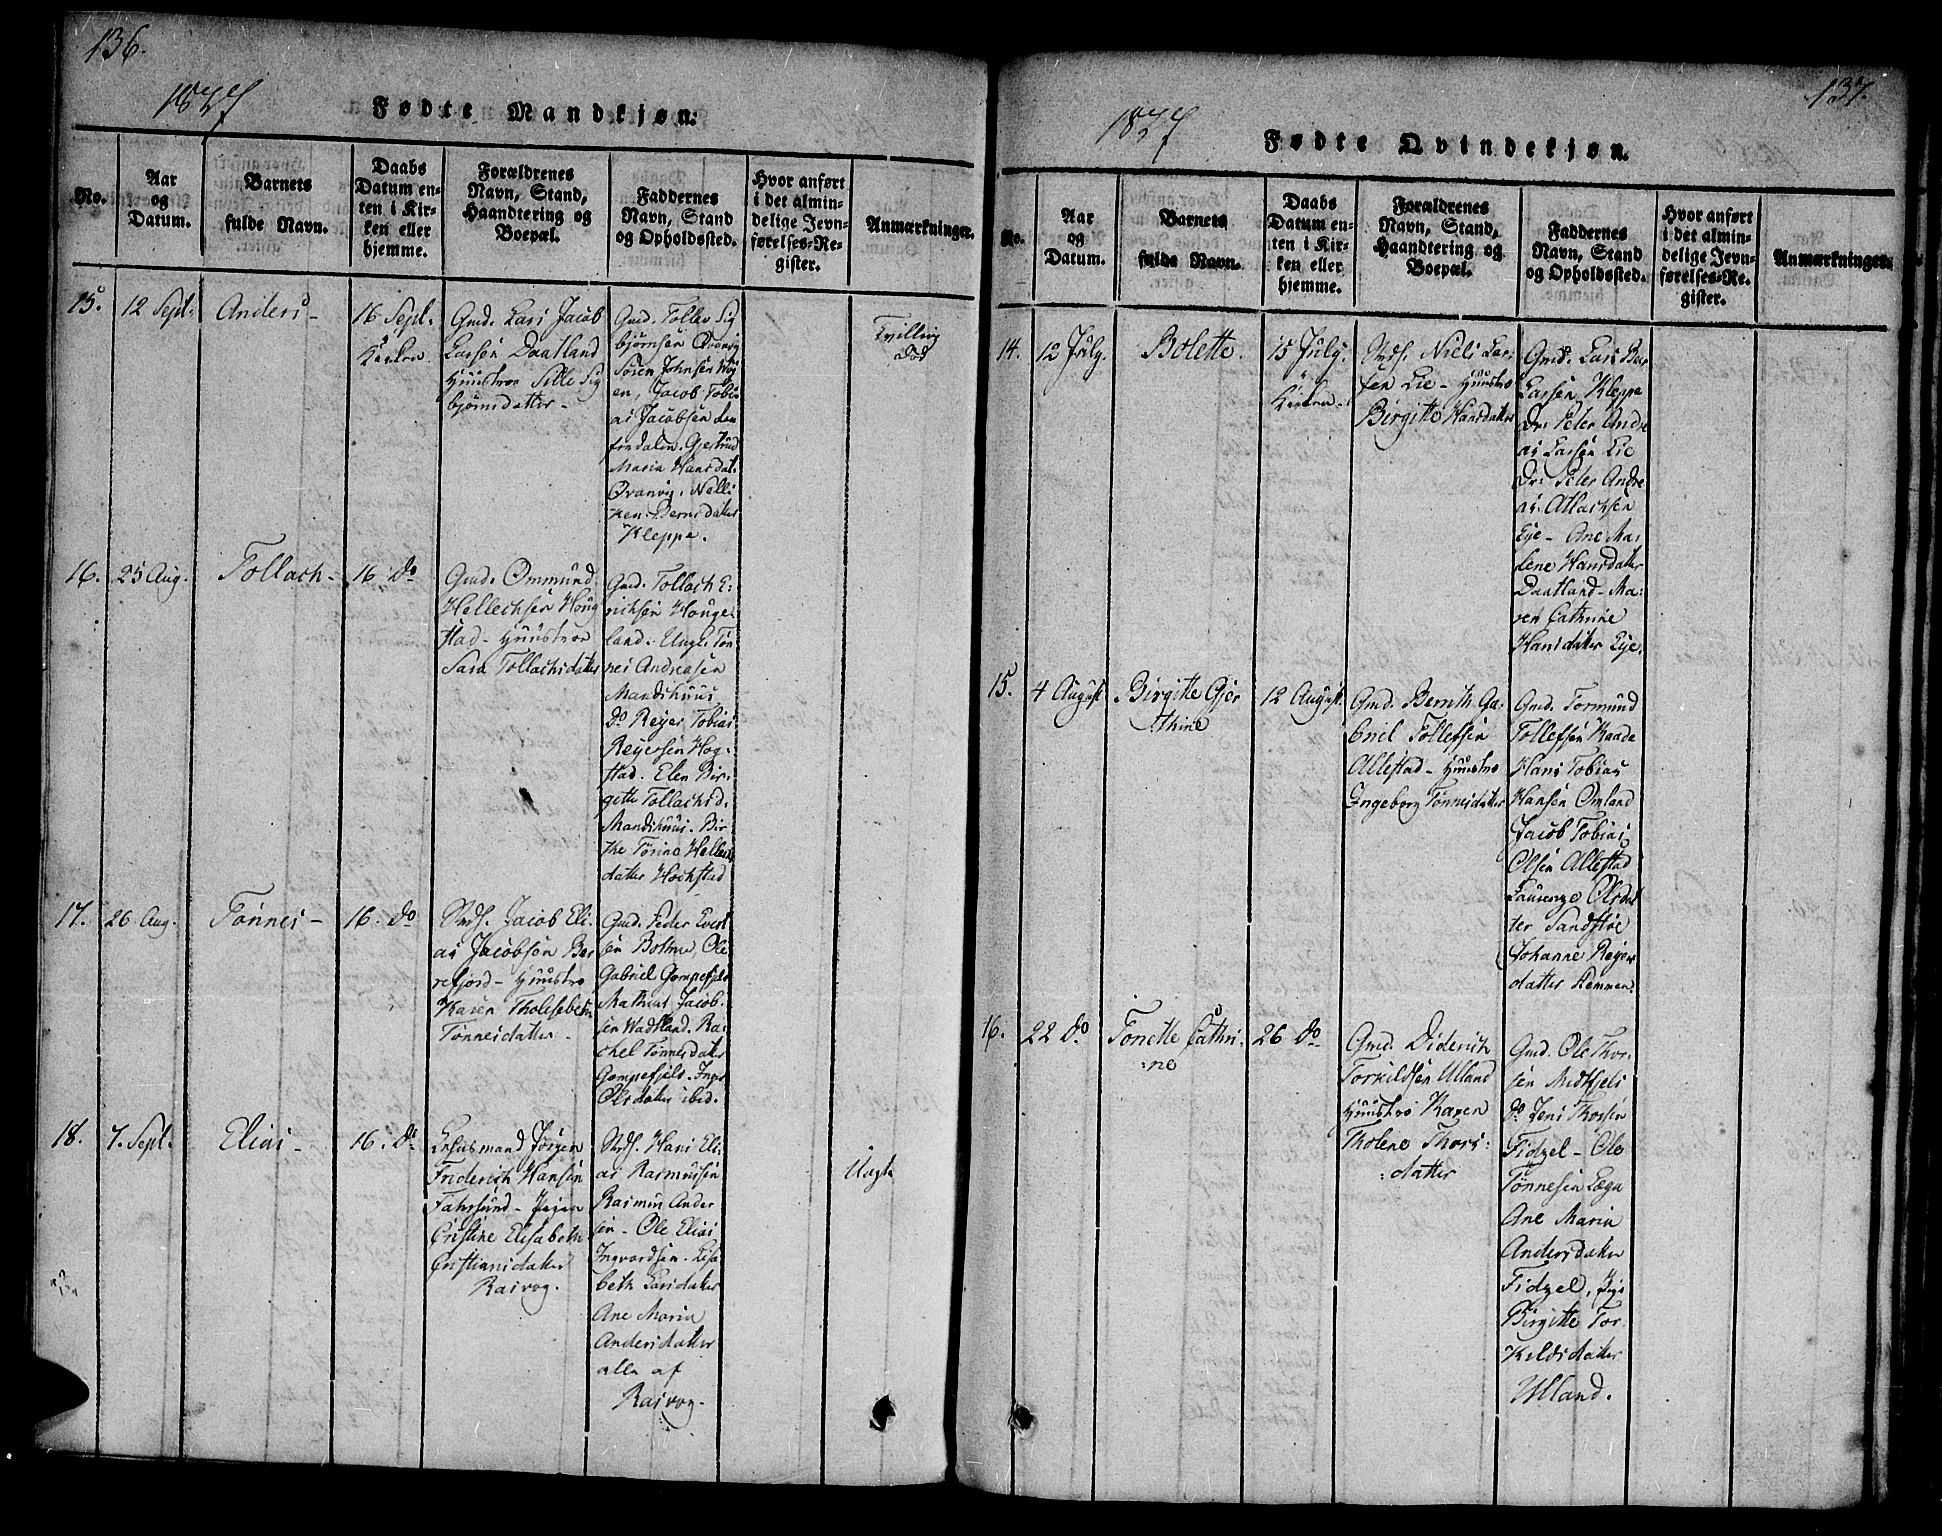 136.
1827
Fødte Mandkjøn.
No.
Aar
og
Datum.
Barnets
fulde Navn.
Daabs
Datum en-
ten i Kir-
ken eller
hjemme.
Forældrenes
Navn, Stand,
Haandtering og
Boepæl.
Faddernes
Navn, Stand
og Opholdssted.
Hvor anført
i det almin-
delige Jevn-
førelses-Re-
gister.
Anmærkninger.
15.
12 Sept.
Anders -
16 Sept.
Kirken
Gmd. Lars Jacob
Larsen Daatland
Huustroe Sille Sig
bjørnsdatter -
Gmd. Tollev Sig
bjørnsen Qvanvig
Søren Johnsen
en, Jacob Tobi-
as Jacobsen
Gjertrud
Maria Hansdat.
Qvanvig. Nilli
ken Berntsdatter
Kleppe.
Tvilling
død
16.
25 Aug.
Tollach -
16 do
Gmd. Ommund
Hellechsen Houg
stad - Huustroe
Sara Tollachsdatter
Gmd. Tollach E:
richsen Houge-
land. Ungk. Tøn
nes Andreasen
Mandshuus
do Reyer Tobias
Reyersen Hog-
stad. Elen Bir-
gitte Tollachsd.
Mandshuus. Bir
the Tørine Hellechs
datter Hochstad
17.
26 Aug.
Tønnes -
16. do
Jacob Eli-
as Jacobsen Ber
refjord - Huustro
Karen Tholisebeth
Tønnesdatter -
Gmd. Peder Evert
sen Botne, Ole
Gabriel Gompefjeld
Mathias Jacob-
sen Wadtland. Ra-
chel Tønnesdatter
Gompefjeld. Inger
Olsdatter ibid.
18.
7. Sept.
Elias -
16. do
Friderich Hansen
Fahrsund - Pigen
Cristine Elisabeth
Cristiansdatter
Rasvog.
Hans Eli-
as Rasmussen
Rasmus Ander
sen - Ole Elias
Ingvordsen. Lisa
beth Larsdatter
Ane Maria
Andersdatter
alle af
Rasvog -
Uægte
137.
1827
Fødte Qvindekjøn.
No.
Aar
og
Datum.
Barnets
fulde Navn.
Daabs
Datum en-
ten i Kir-
ken eller
hjemme.
Forældrenes
Navn, Stand,
Haandtering og
Boepæl.
Faddernes
Navn, Stand
og Opholdssted.
Hvor anført
i det almin-
delige Jevn-
førelses-Re-
gister.
Anmærkninger.
14.
12 July.
Bolette.
15 July.
Kirken -
Niels Lar-
sen Lie - Huustro
Birgitte Hansdatter
Gmd. Lars
Larsen Kleppe
Do: Peter Andre
as Larsen Lie
Do: Peter Andre
as Atlachsen
Eye - Ane Ma-
lene Hansdatter
Daatland - Ma-
ren Cathrine
Hansdatter Eye.
15.
4 August
Birgitte Gjer
:thine
12 August.
Gmd. Bernth Ga-
briel Tollefsen
Allestad - Huustro
Ingeborg Tønnesdatter
Gmd. Tormund
Tollefsen Raade
Hans Tobias
Hansen Omland
Jacob Tobias
Olsen Allestad
Laurenze Olsdat
ter Sandstøe
Johanne Reyers
datter Stemmen.
16.
22 do
Tonette Cathri:
:ne
26 do
Gmd. Diderich
Torkildsen Ulland
Huustro Karen
Tholene Thors:
:datter
Gmd. Ole Thor:
sen Midtfjeld
do Jens Thorsen
Fidzel - Ole
Tønnesen Ege
Ane Maria
Andersdatter
Fidzel, Pige
Birgitte Tor
kildsdatter
Ulland.